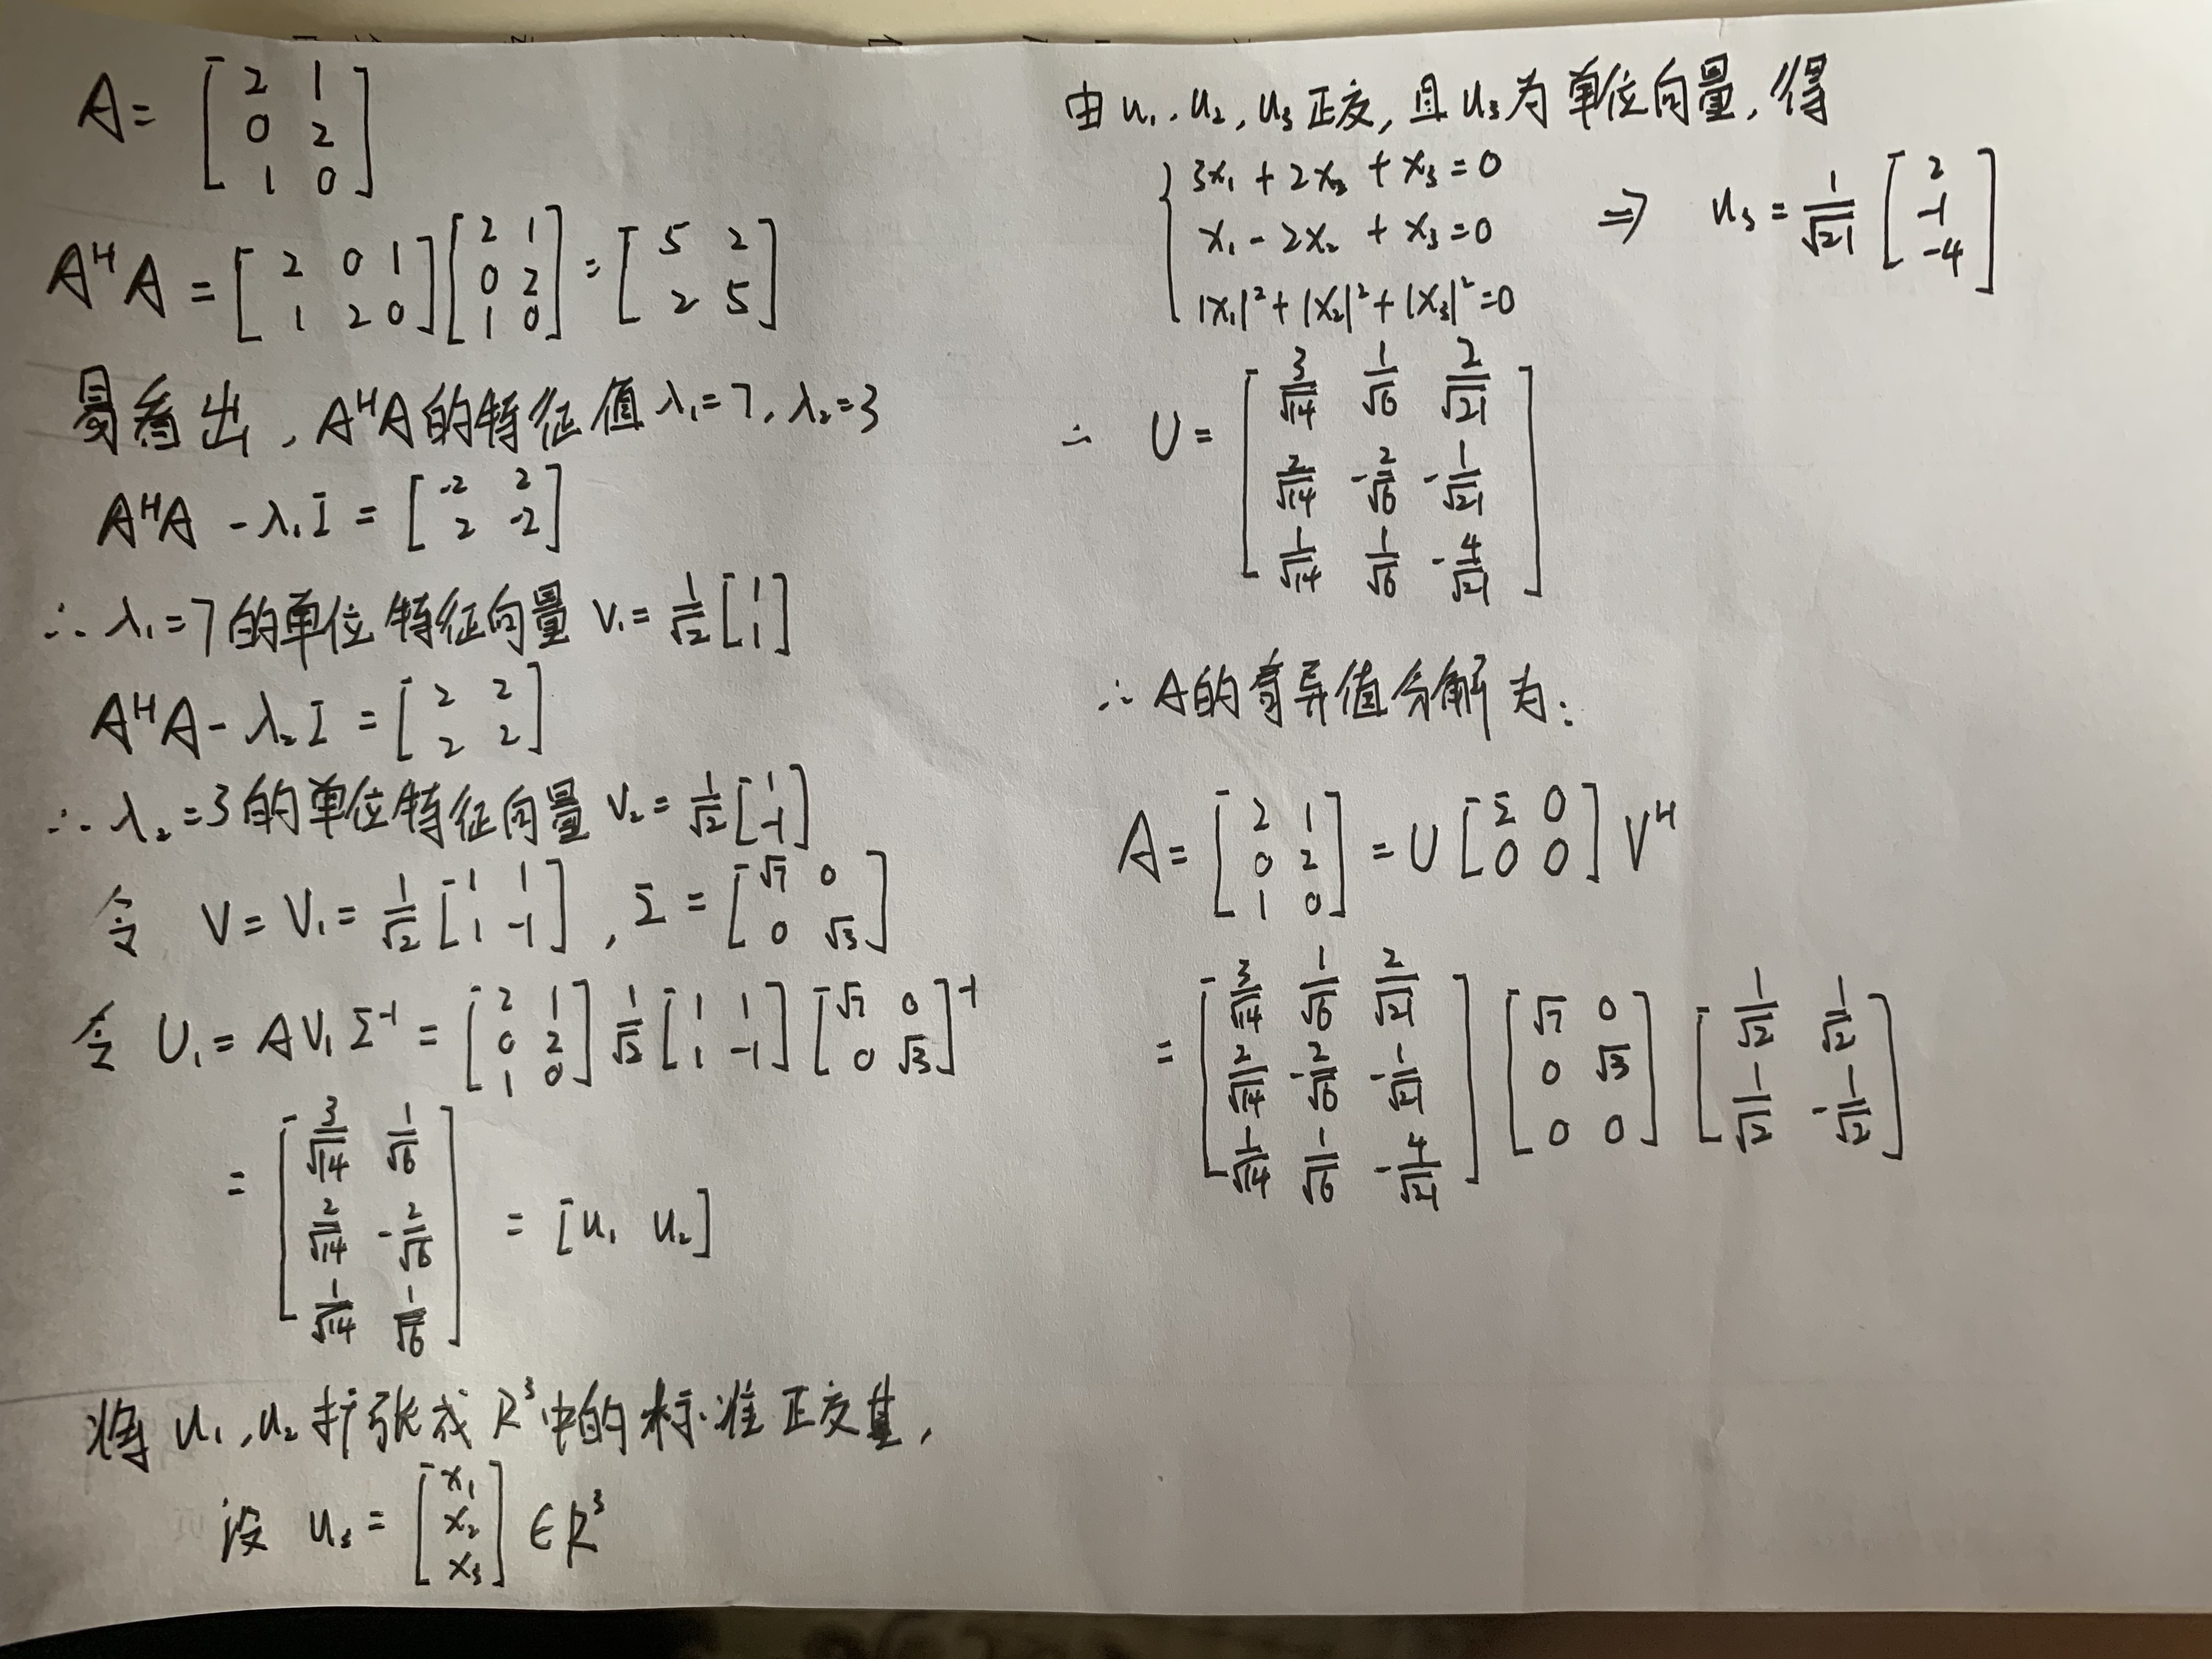 A = [2 1; 0 2; 1 0]
AᴴA = [2 0 1; 1 2 0] [2 1; 0 2; 1 0] = [5 2; 2 5]
易看出, AᴴA的特征值 λ₁=7, λ₂=3
AᴴA - λ₁I = [-2 2; 2 -2]
∴ λ₁=7的单位特征向量 V₁ = 1/√2 [1; 1]
AᴴA - λ₂I = [2 2; 2 2]
∴ λ₂=3的单位特征向量 V₂ = 1/√2 [1; -1]
令 V = V₁ = 1/√2 [1 1; 1 -1], Σ = [√7 0; 0 √3]
令 U₁ = AV₁Σ⁻¹ = [2 1; 0 2; 1 0] 1/√2 [1 1; 1 -1] [√7 0; 0 √3]⁻¹
= [3/√14 1/√6; 2/√14 -2/√6; 1/√14 1/√6] = [u₁ u₂]
将 u₁, u₂ 扩张成 R³中的标准正交基,
设 u₃ = [x₁; x₂; x₃] ∈ R³
由 u₁, u₂, u₃ 正交, 且 u₃ 为单位向量, 得
{ 3x₁ + 2x₂ + x₃ = 0
x₁ - 2x₂ + x₃ = 0 ⇒ u₃ = 1/√21 [2; -1; -4]
|x₁|² + |x₂|² + |x₃|² = 0
∴ U = [3/√14 1/√6 2/√21; 2/√14 -2/√6 -1/√21; 1/√14 1/√6 -4/√21]
∴ A的奇异值分解为:
A = [2 1; 0 2; 1 0] = U [Σ 0; 0 0] Vᴴ
= [3/√14 1/√6 2/√21; 2/√14 -2/√6 -1/√21; 1/√14 1/√6 -4/√21] [√7 0; 0 √3; 0 0] [1/√2 1/√2; 1/√2 -1/√2]